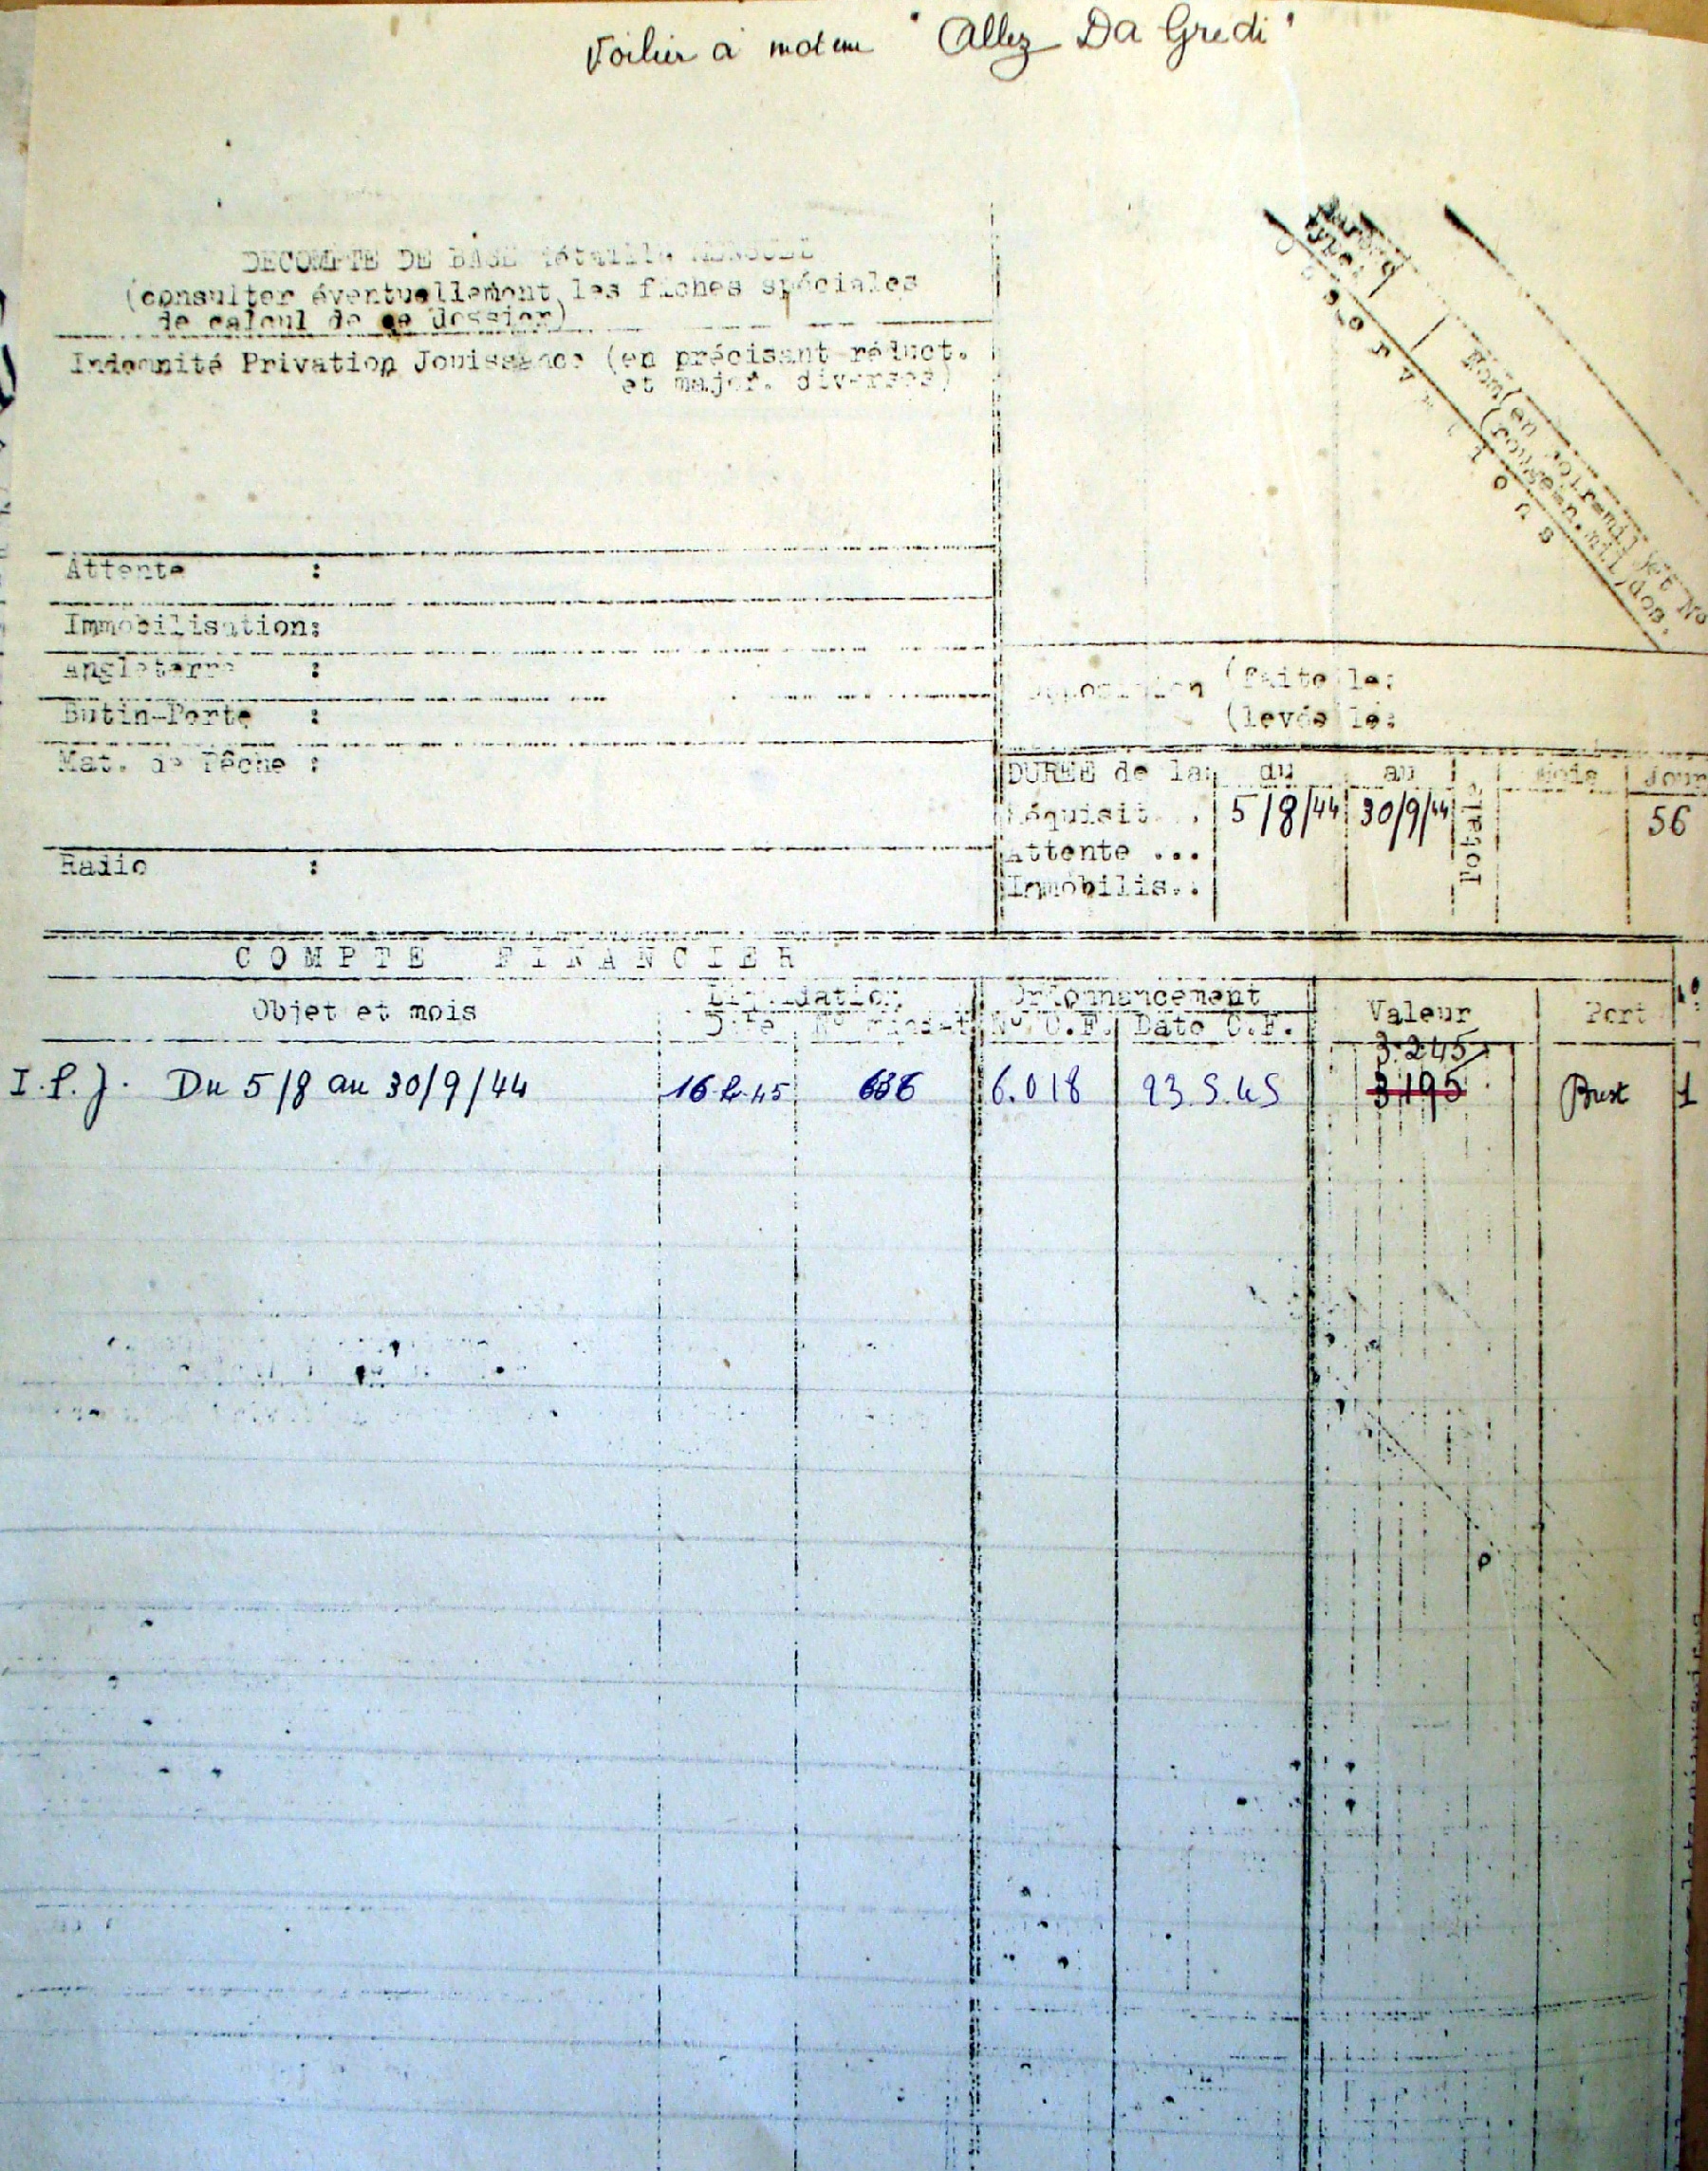 Voilier à moteur "Allez Da Gredi"
DECOMPTE DE BASE détaillé MENSUEL
(consulter éventuellement les fiches spéciales
de calcul de ce dossier)
Indemnité Privation Jouissance (en précisant réduct.
et major. diverses)
Attente :
Immobilisation:
Angleterre :
Butin-Perte :
Mat. de Pêche :
Radio :
Observations
Nom (en noir=mil
(rouge=n.mil) et No dos.
Opposition (faite le:
(levée le:
DUREE de la: du au Total Mois Jour
Réquisit... 5/8/44 30/9/44 56
Attente ...
Immobilis..
COMPTE FINANCIER
Objet et mois Liquidation Ordonnancement Valeur Port N°
Date N° mandat N° C.F. Date C.F.
3.245
I.P.J. Du 5/8 au 30/9/44 16.2.45 636 6.018 23.5.45 3.195 Brest 1